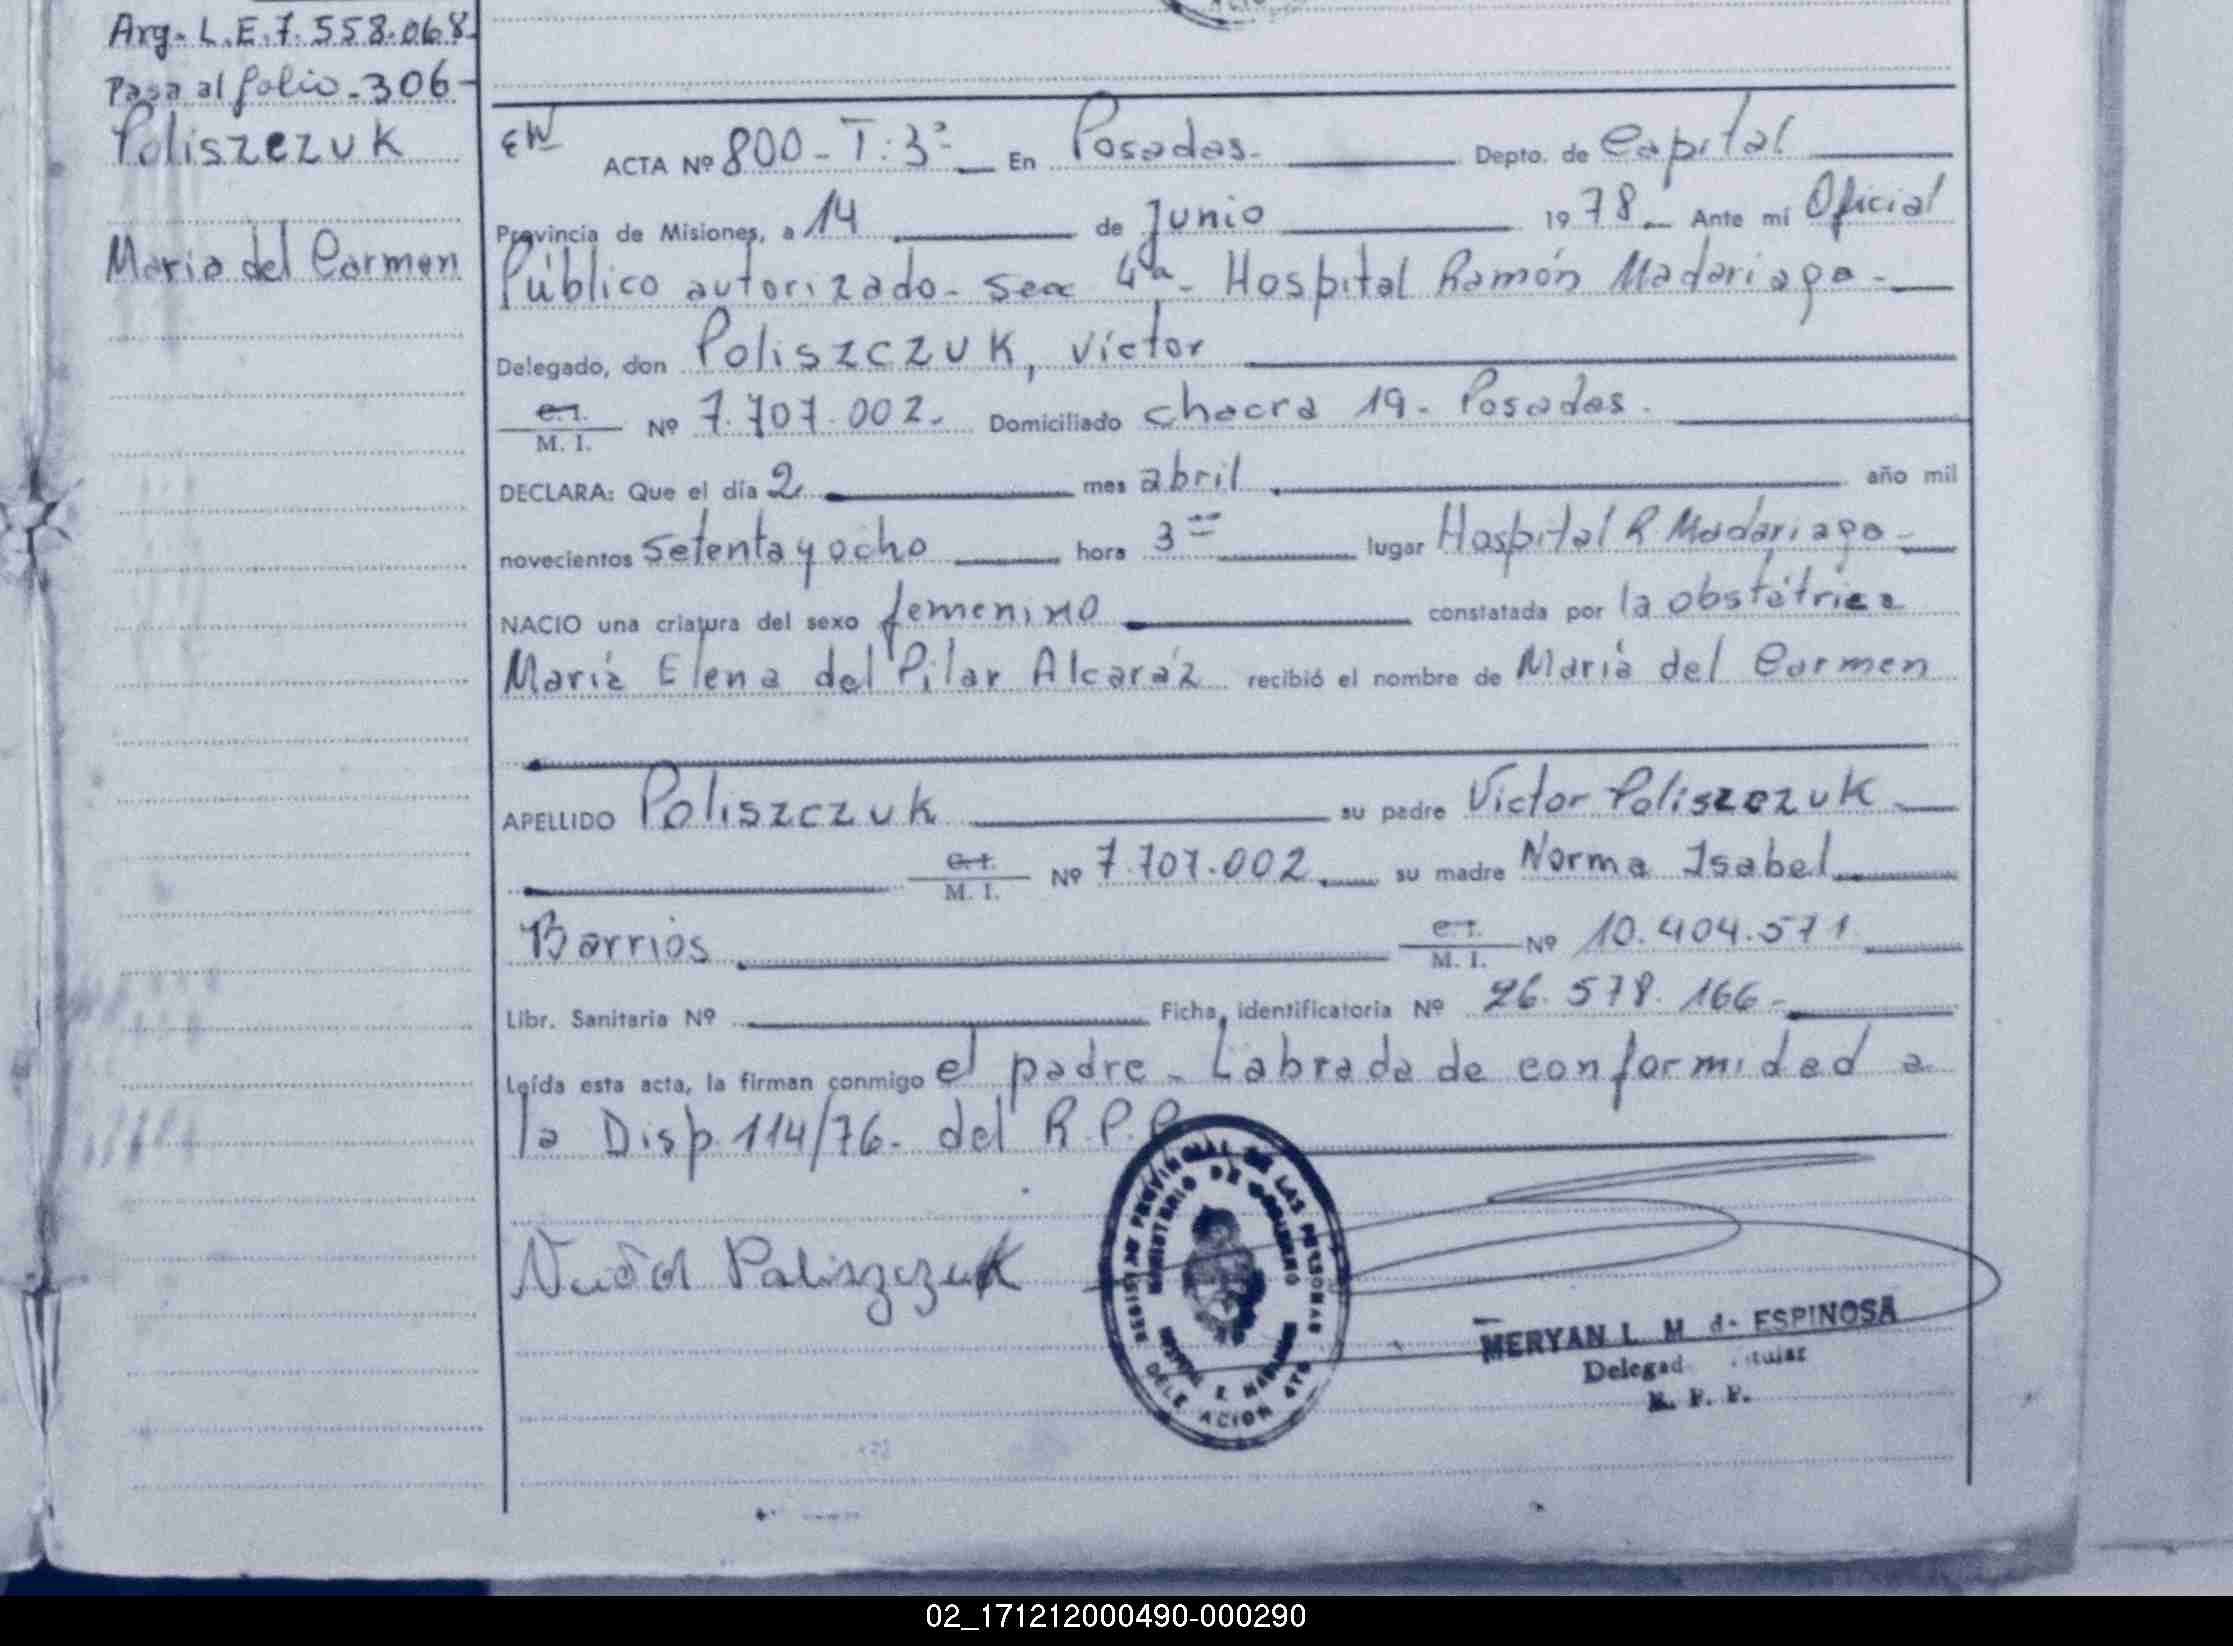 Arg. L.E. 7.558.068.
Pasa al folio - 306 -
Poliszczuk
Maria del Carmen
ACTA Nº 800 - T: 3º En Posadas. Depto. de Capital
Provincia de Misiones, a 14 de Junio 1978. Ante mí Oficial
Público autorizado - Secc 4ª - Hospital Ramón Madariaga -
Delegado, don Poliszczuk, Víctor
C. I. M. I. Nº 7.707.002. Domiciliado chacra 19 - Posadas.
DECLARA: Que el día 2 mes abril año mil
novecientos setenta y ocho hora 3 lugar Hospital R Madariaga -
NACIO una criatura del sexo femenino constatada por la obstétrica
María Elena del Pilar Alcaráz recibió el nombre de María del Carmen
APELLIDO Poliszczuk su padre Víctor Poliszczuk
C. I. M. I. Nº 7.707.002 su madre Norma Isabel
Barrios C. I. M. I. Nº 10.404.571
Libr. Sanitaria Nº Ficha identificatoria Nº 26.578.166 -
Leída esta acta, la firman conmigo el padre - Labrada de conformidad a
la Disp. 114/76 - del R.P.P
Poliszczuk
REGISTRO PROVINCIAL DE LAS PERSONAS
MINISTERIO DE GOBIERNO
DELEGACION 4TA
MERYAN L. M de ESPINOSA
Delegad
R. P. P.
02_171212000490-000290